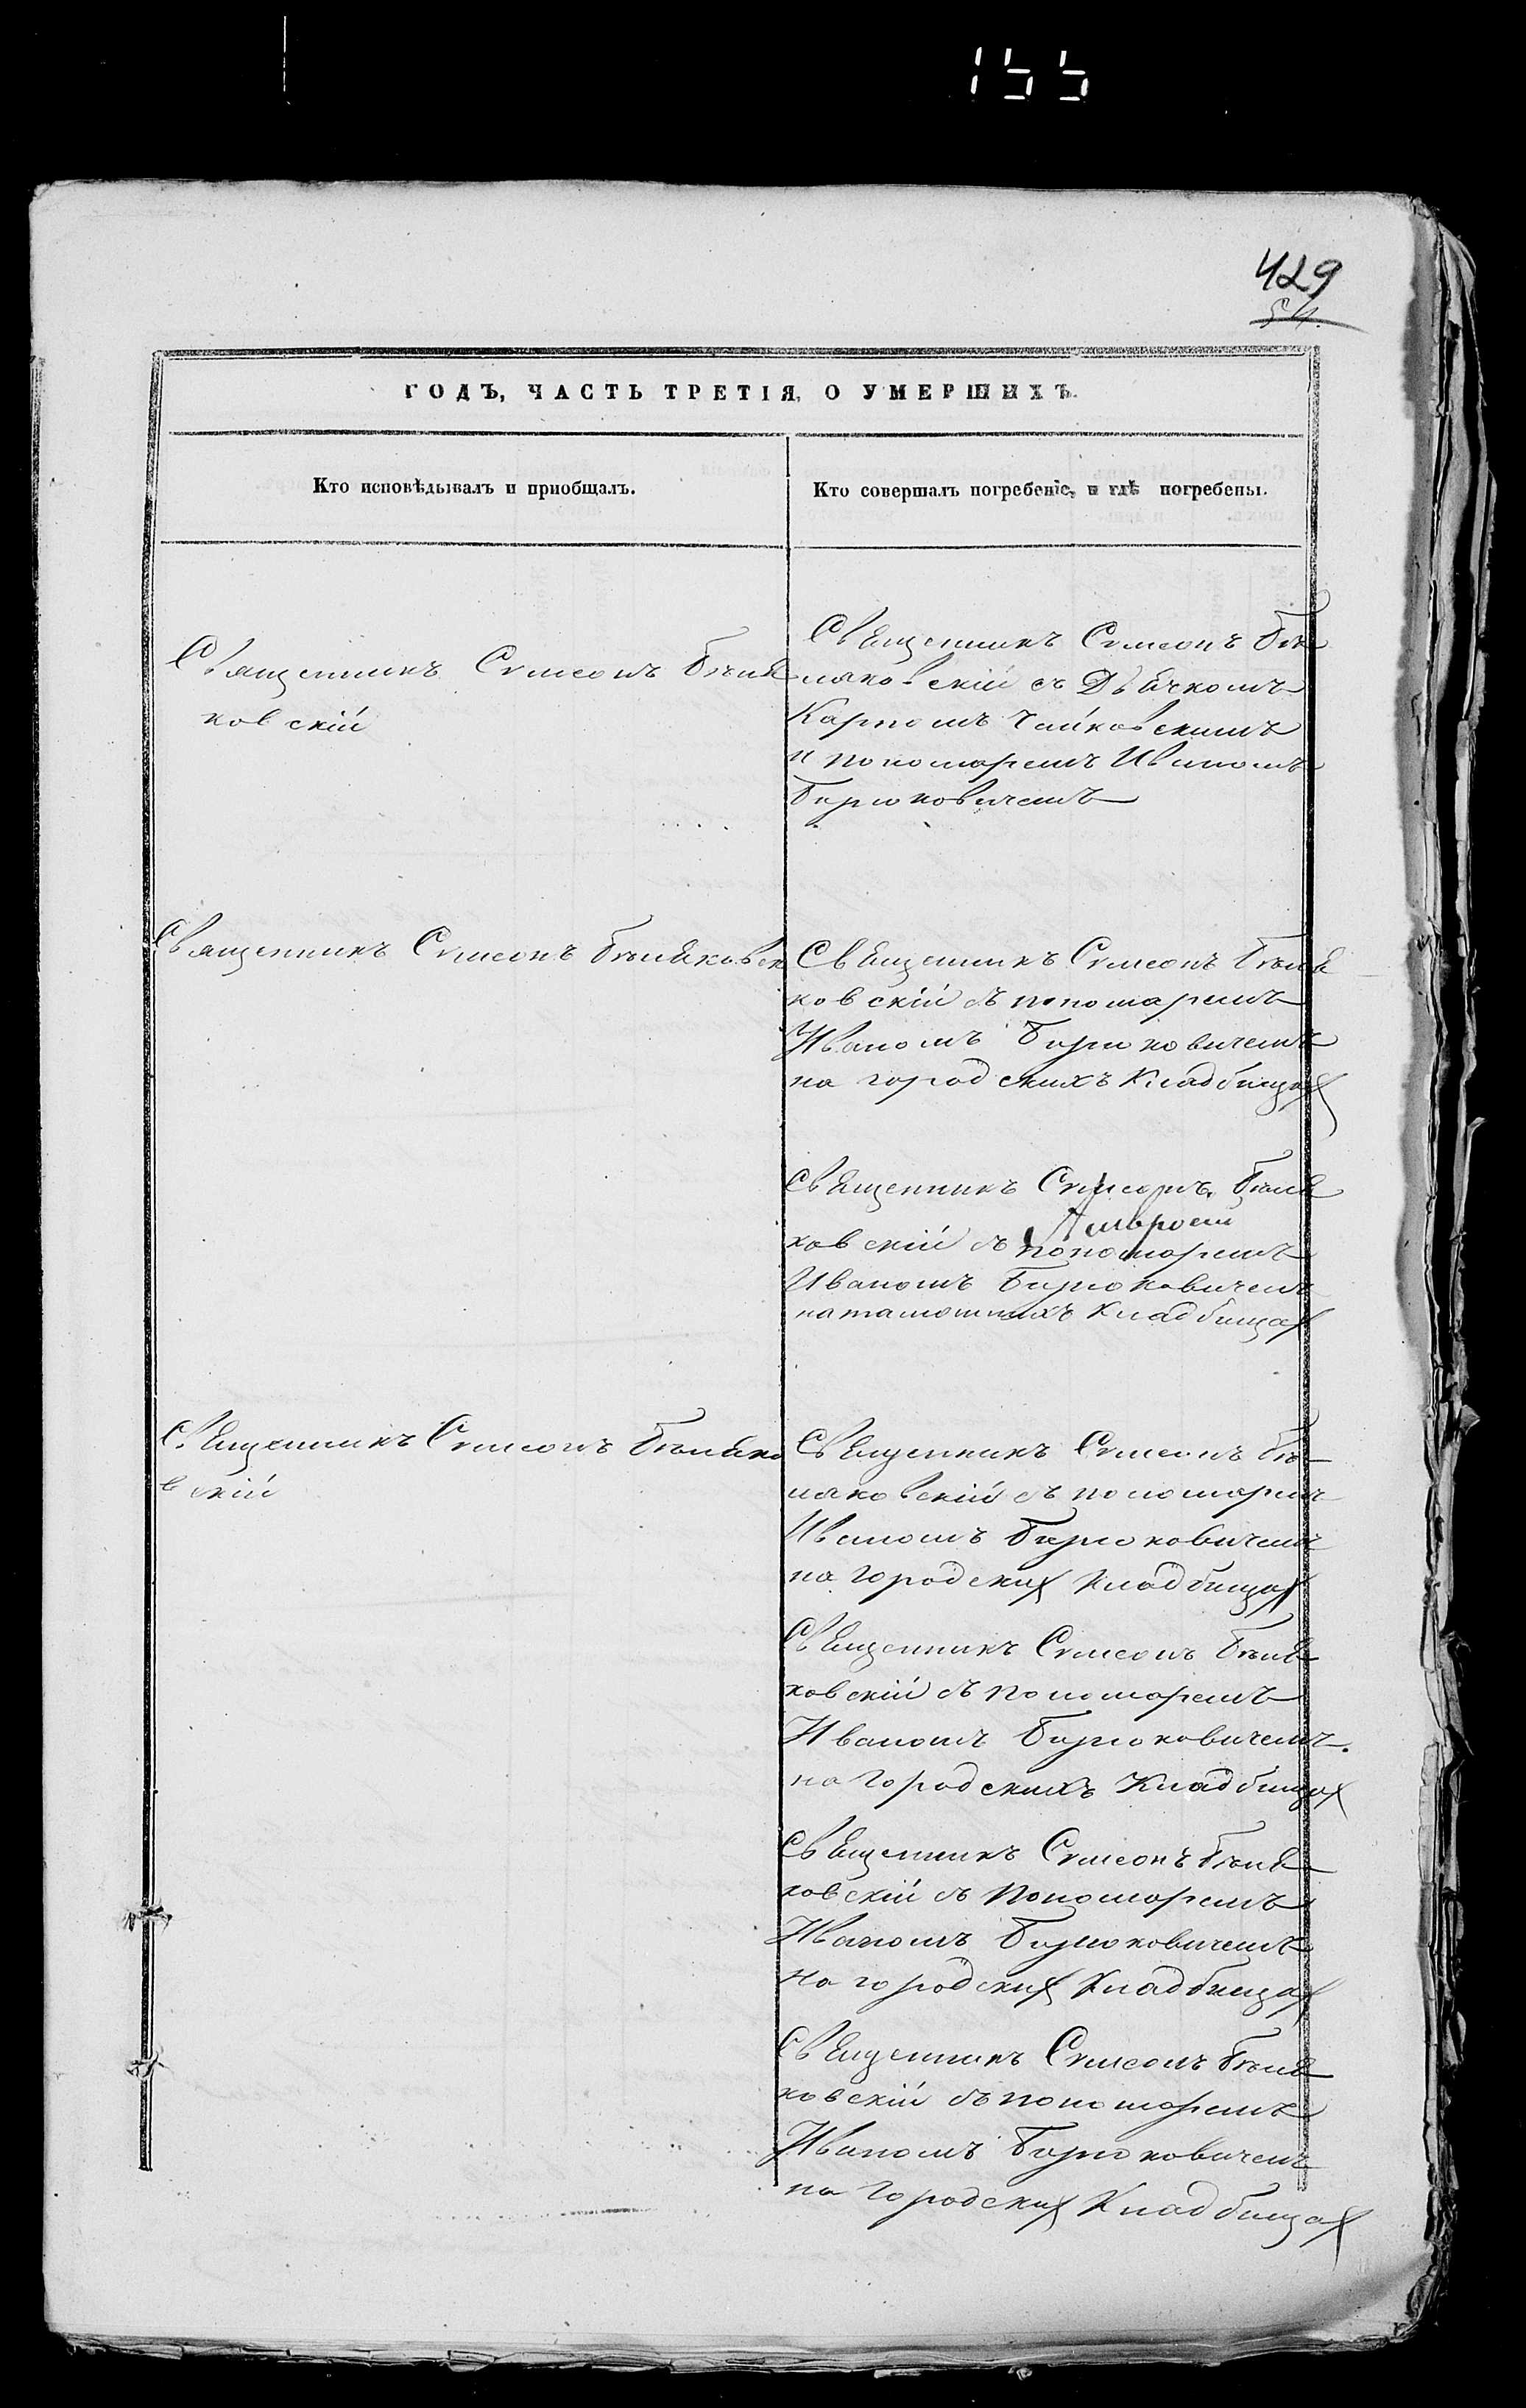 155
429
54.
ГОДЪ, ЧАСТЬ ТРЕТІЯ, О УМЕРШИХЪ.
Кто исповѣдывалъ и пріобщалъ.
Кто совершалъ погребеніе, и гдѣ погребены.
Священникъ Сѵмеонъ Бѣля
ковскій
Священникъ Сѵмеонъ Бѣ
ляковскій съ Дьячкомъ
Карпомъ Чайковскимъ
и пономаремъ Иваномъ
Бирюковичемъ
Священникъ Сѵмеонъ Бѣляковск
Священникъ Сѵмеонъ Бѣля
ковскій съ пономаремъ
Иваномъ Бирюковичемъ
на городскихъ Кладбищах
Священникъ Сѵмеонъ Бѣля
ковскій съ пономаремъ
Иваномъ Бирюковичемъ
на тамошнихъ Кладбищах
Священникъ Сѵмеонъ Бѣляко
вскій
Священникъ Сѵмеонъ Бѣ
ляковскій съ пономаремъ
Иваномъ Бирюковичемъ
на городских Кладбищах
Священникъ Сѵмеонъ Бѣля
ковскій съ пономаремъ
Иваномъ Бирюковичемъ.
на городскихъ Кладбищах
Священникъ Сѵмеонъ Бѣля
ковскій съ пономаремъ
Иваномъ Бирюковичемъ
на городских Кладбищах
Священникъ Сѵмеонъ Бѣля
ковскій съ пономаремъ
Иваномъ Бирюковичемъ
на городских Кладбищах